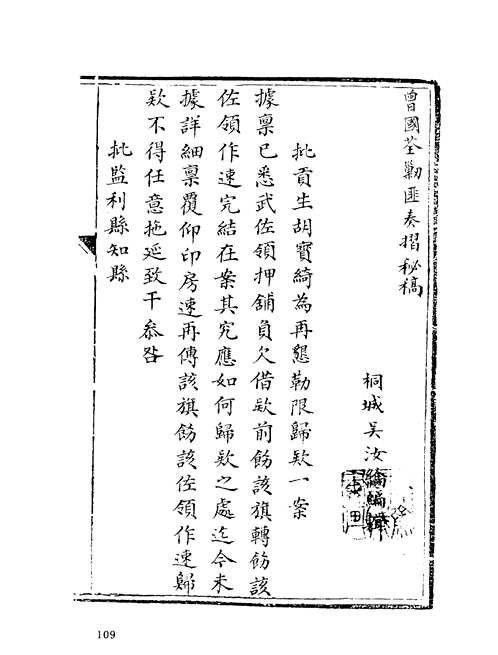 曾國荃勦匪奏摺秘稿
桐城吳汝綸編輯
批貢生胡寶綺為再懇勒限歸欵一案
據禀已悉武佐領押舖負欠借欵前飭該旗轉飭該
佐領作速完結在案其究應如何歸欵之處迄今未
據詳細禀覆仰印房速再傳該旗飭該佐領作速歸
欵不得任意拖延致干叅咎
批監利縣知縣
109